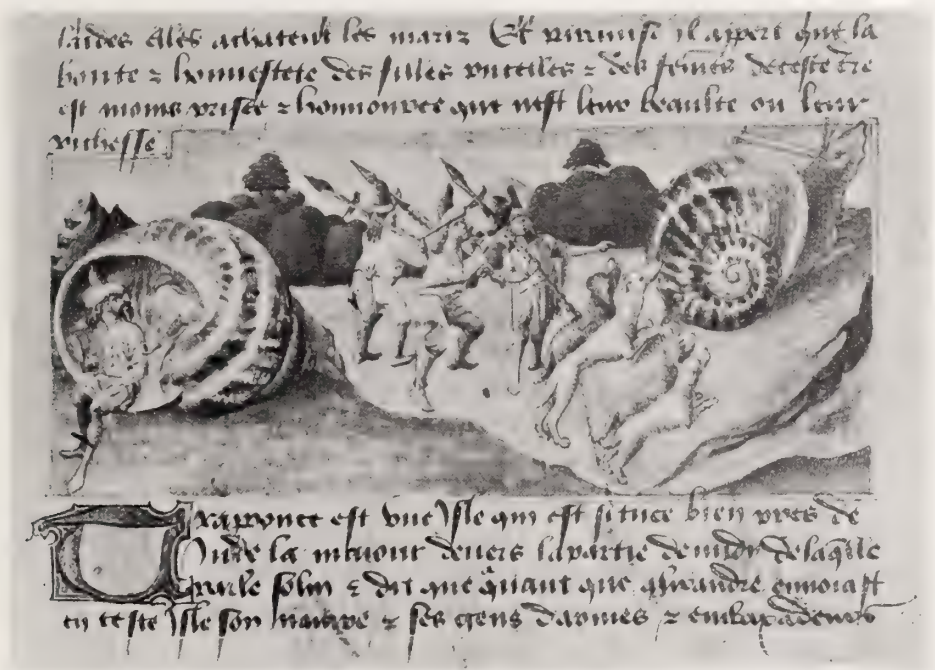 laides elles achatent les mariz Et il appert que la
bonte & honnestete des filles pucelles & des fem̃es de ceste t̃re
est moins prisee & honnouree que nest leur beaulte ou leur
richesse
Traponce est vne Isle qui est situee bien pres de
Inde la deuers la partie de midy de laq̃lle
parle Solin & dit que que alixandre enuoiast
en ceste Isle son nauire & ses gens darmes & embaxadeurs